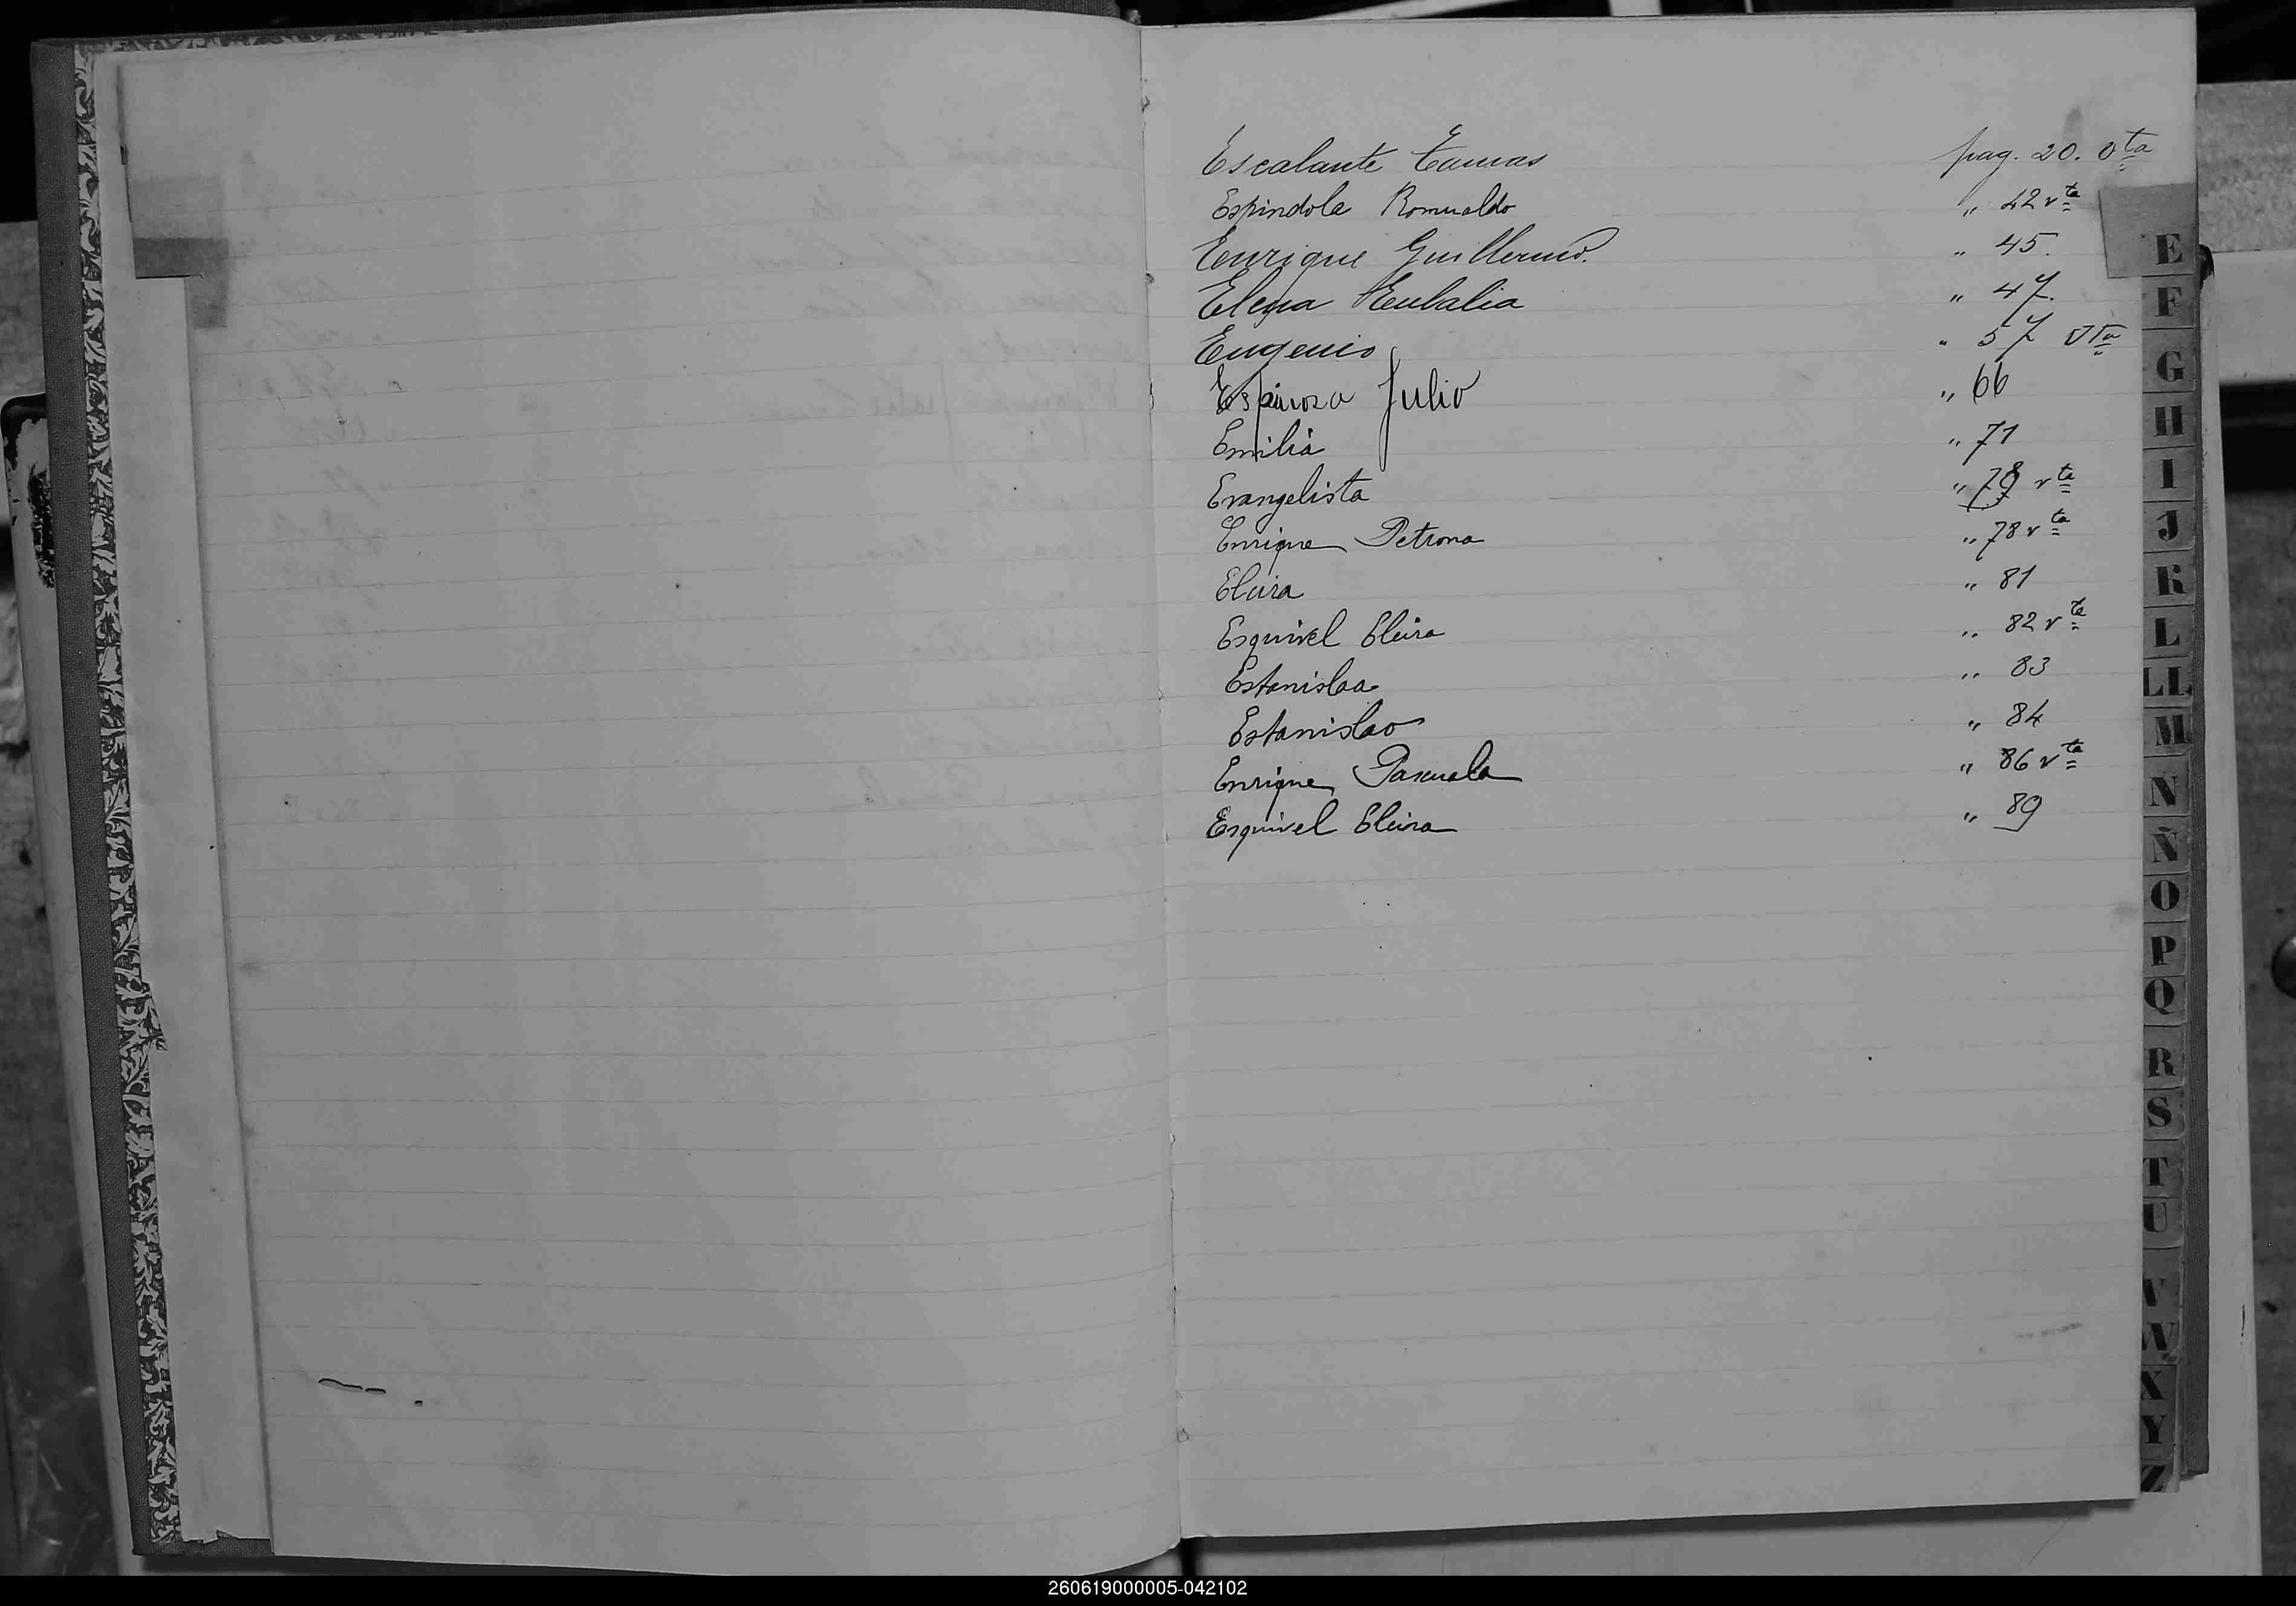 Escalante Tomas pag. 20. vta
Espindola Romualdo " 42 vta
Enrique Guillermo. " 45.
Elena Eulalia " 47.
Eugenio " 57 vta
Espinosa Julio " 66
Emilia " 71
Evangelista " 78 vta
Enrique Petrona " 78 vta
Elvira " 81
Esquivel Elvira " 82 vta
Estanislaa " 83
Estanislao " 84
Enrique Pascuala " 86 vta
Esquivel Elvira " 89
E
F
G
H
I
J
K
L
LL
M
N
Ñ
O
P
Q
R
S
T
U
V
W
X
Y
Z
260619000005-042102